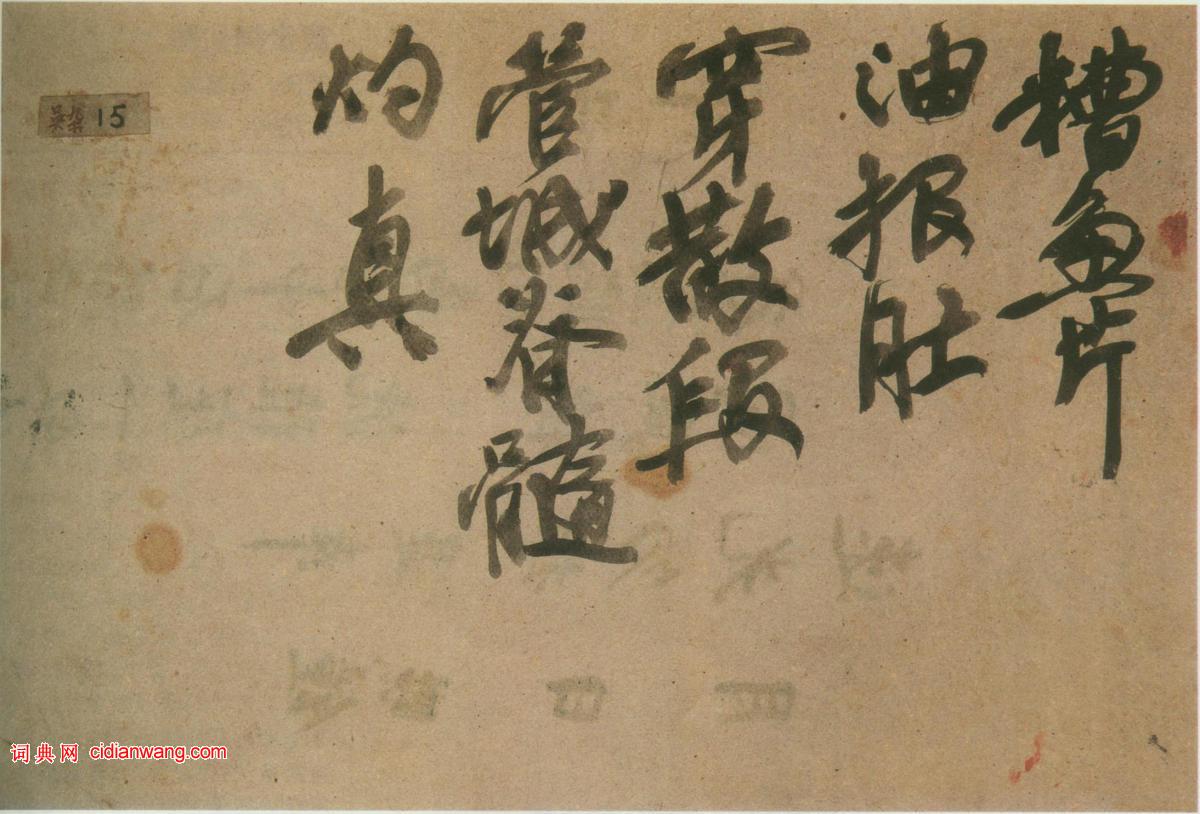 糟魚片
油报肚
穿散段
管城脊髓
灼真
15
词典网 cidianwang.com